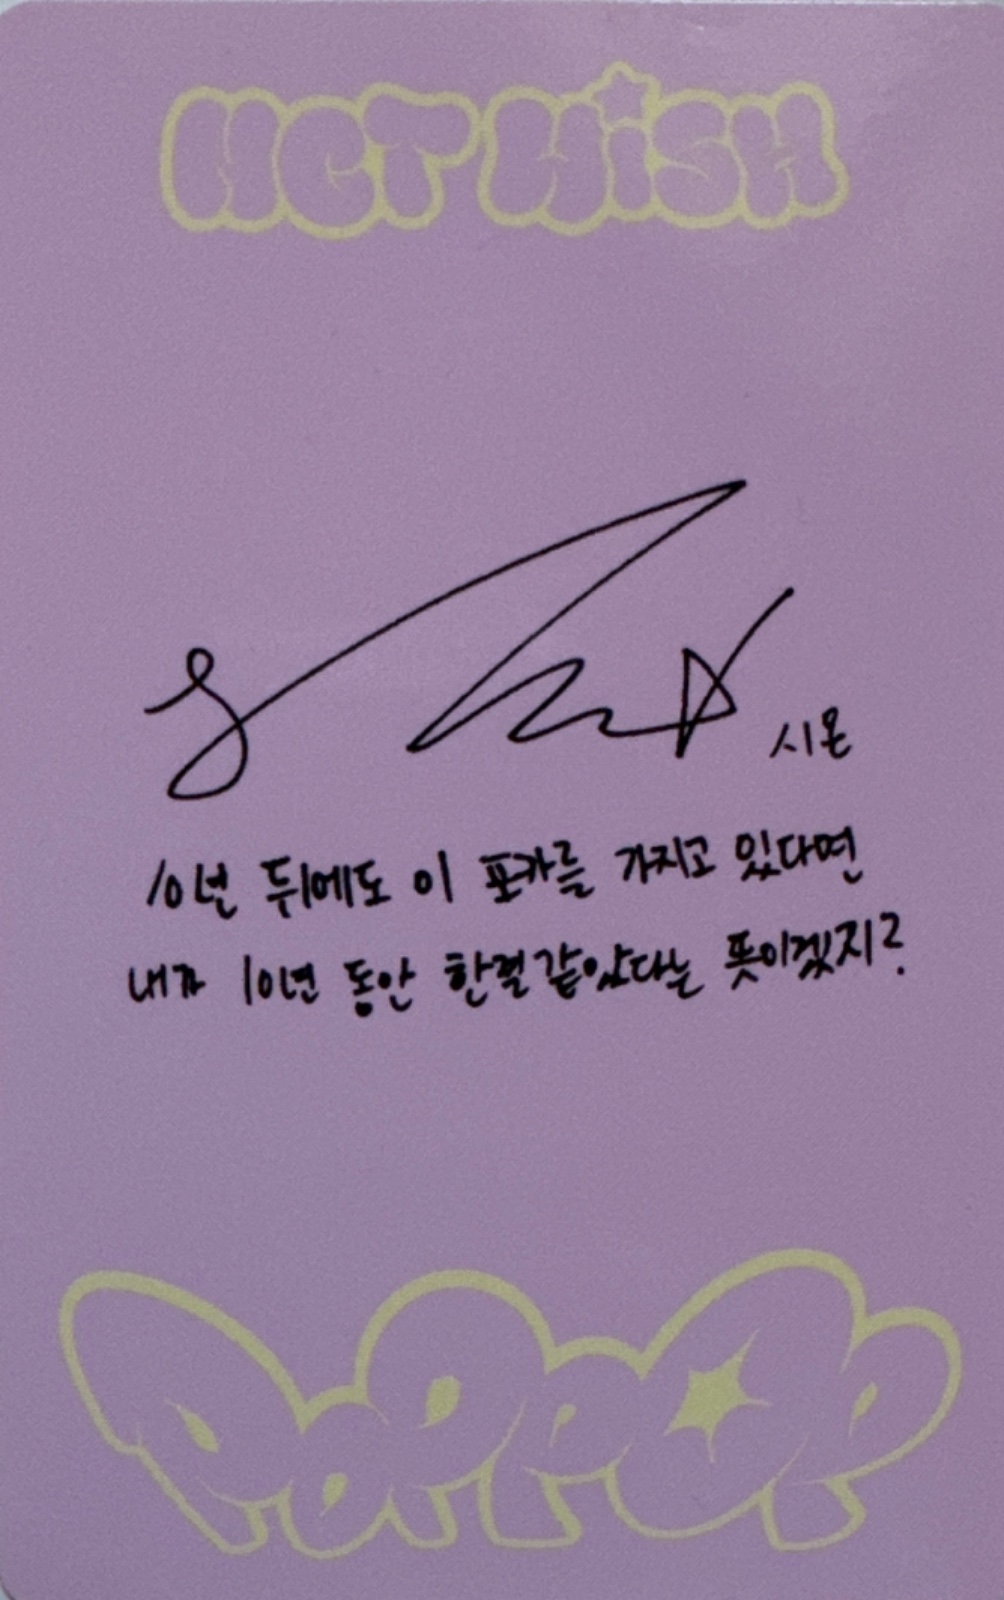 NCT WISH
시온
10년 뒤에도 이 포카를 가지고 있다면
내가 10년 동안 한결같았다는 뜻이겠지?
POPPOP